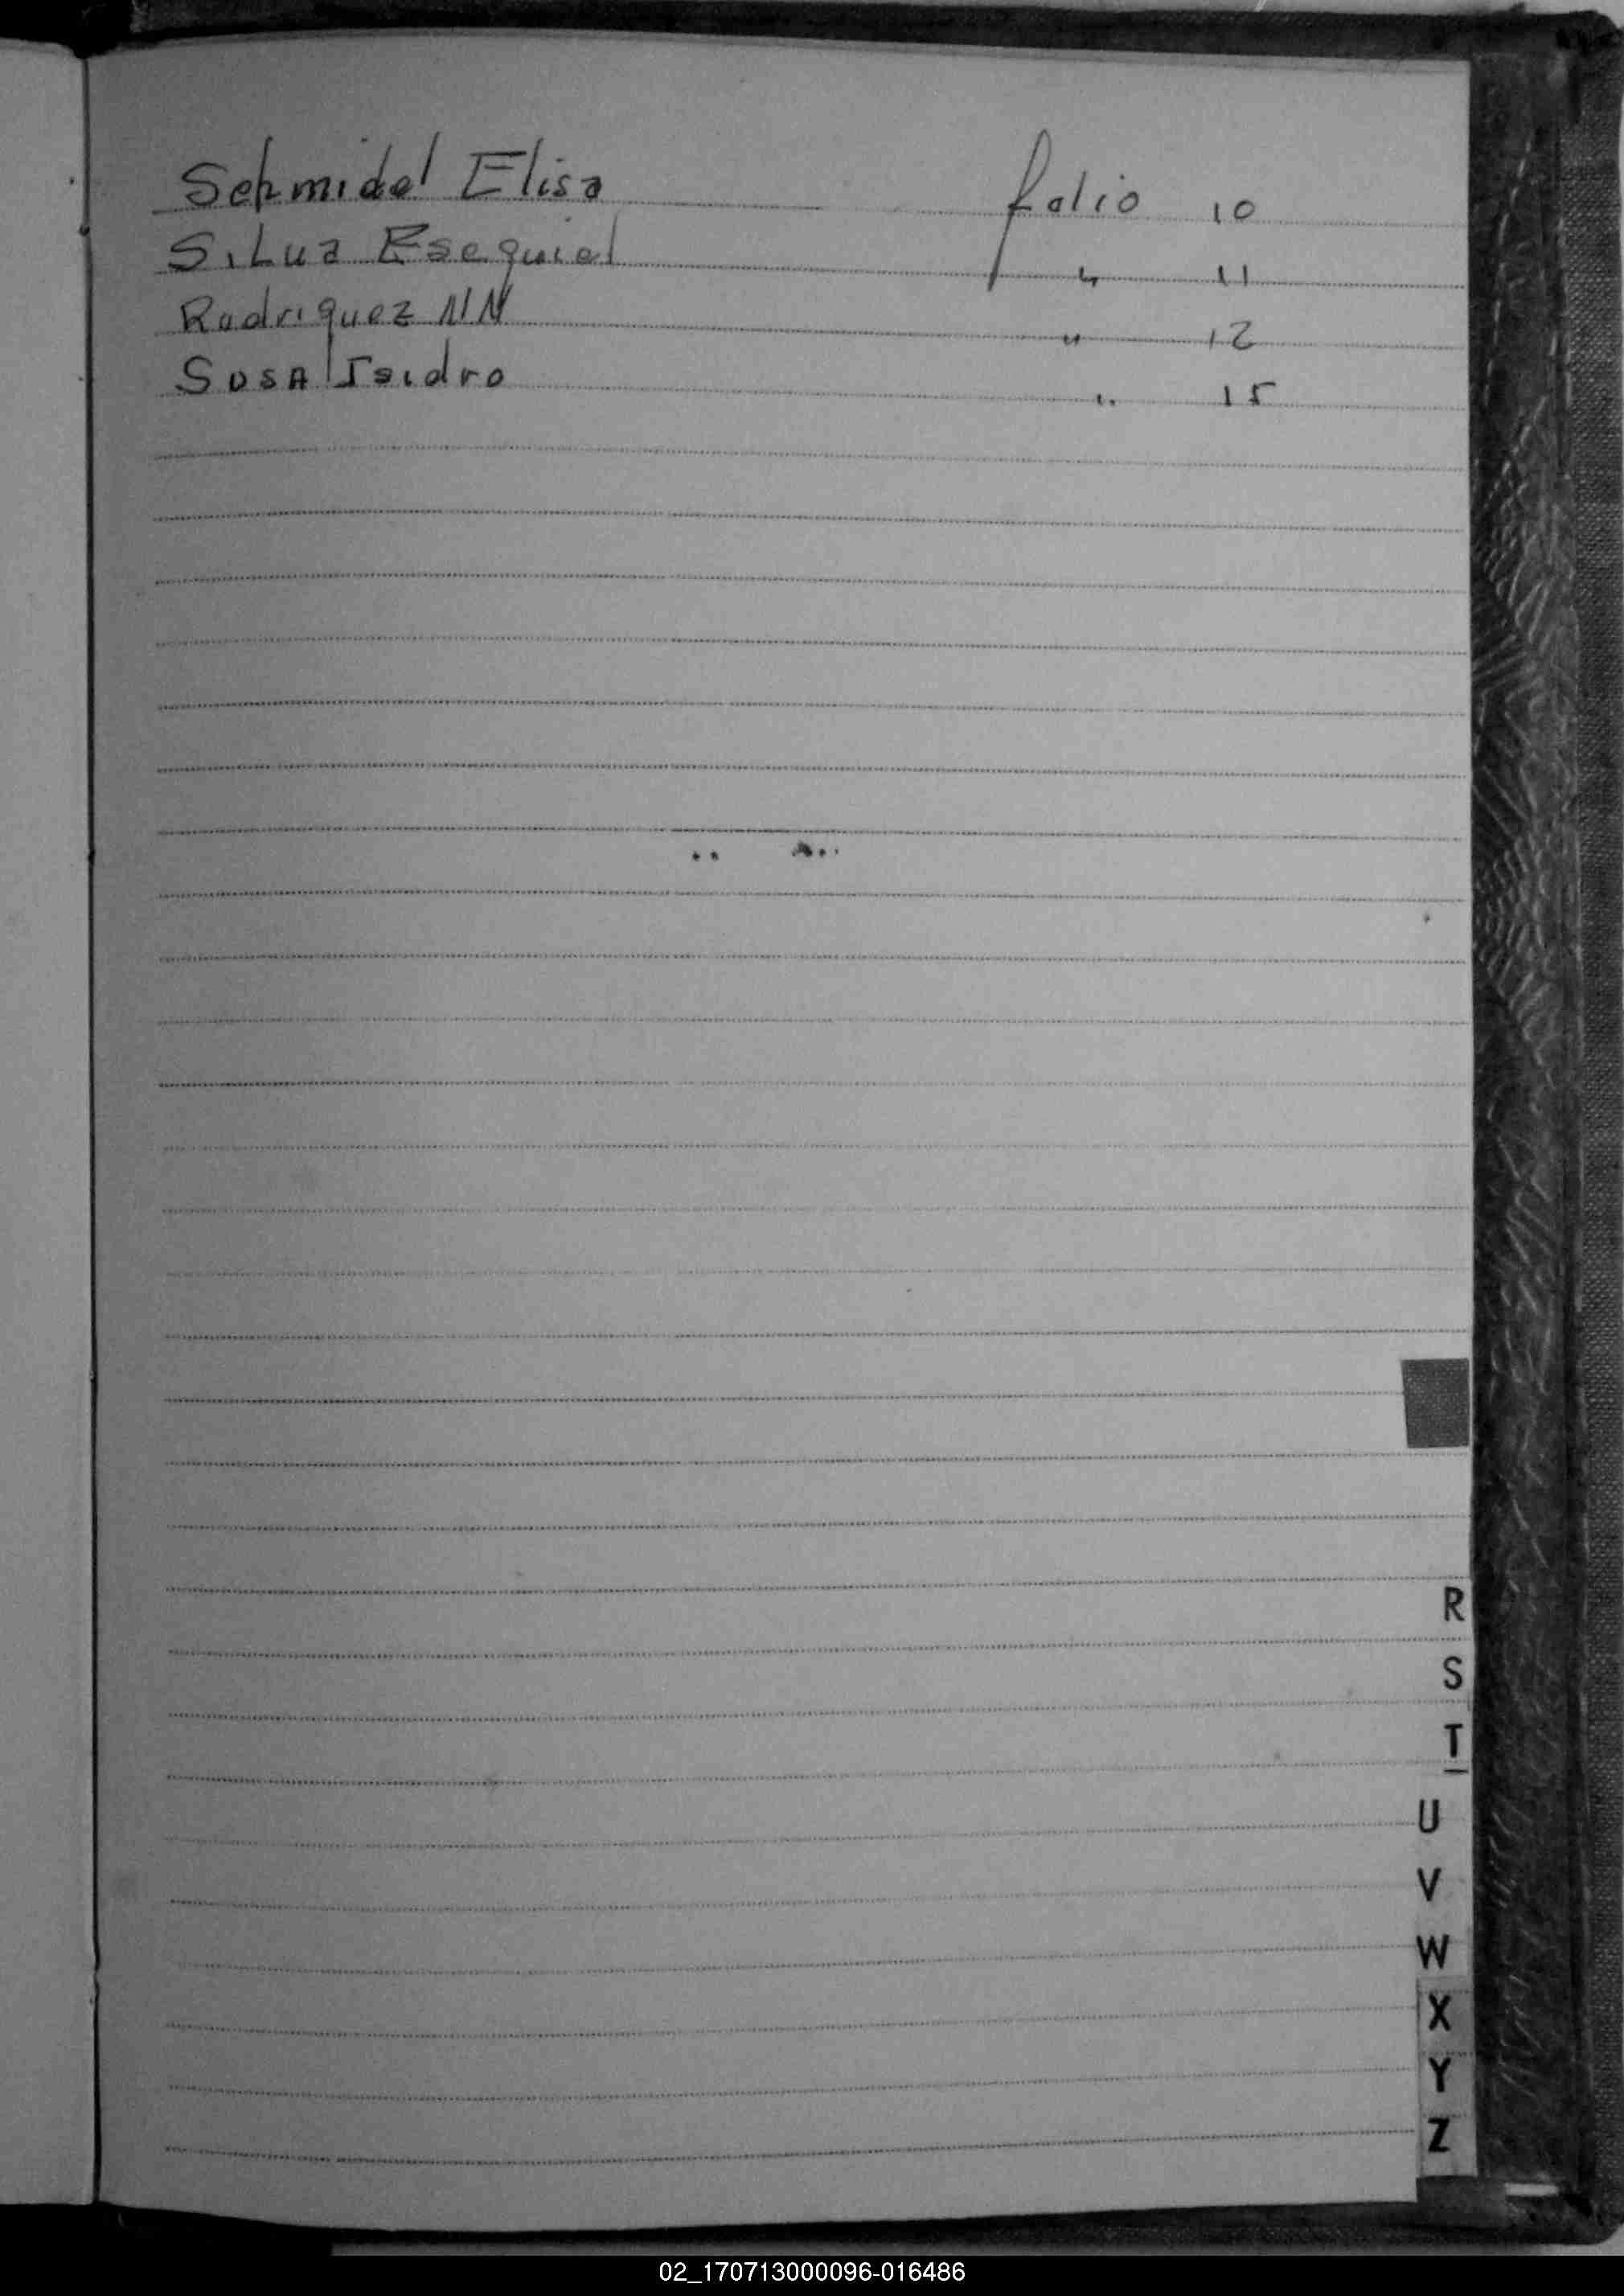 Schmidel Elisa folio 10
Silua Esequiel " 11
Rodriguez NN " 12
Sosa Isidro " 15
R
S
T
U
V
W
X
Y
Z
02_170713000096-016486